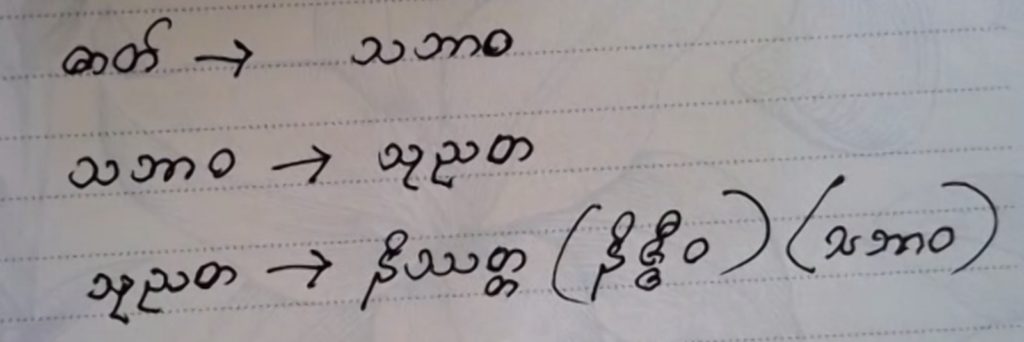 ဓာတ် → သဘာဝ
သဘာဝ → သုညတ
သုညတ → နိဿတ္တ (နိဇ္ဇီဝ) (သဘာဝ)